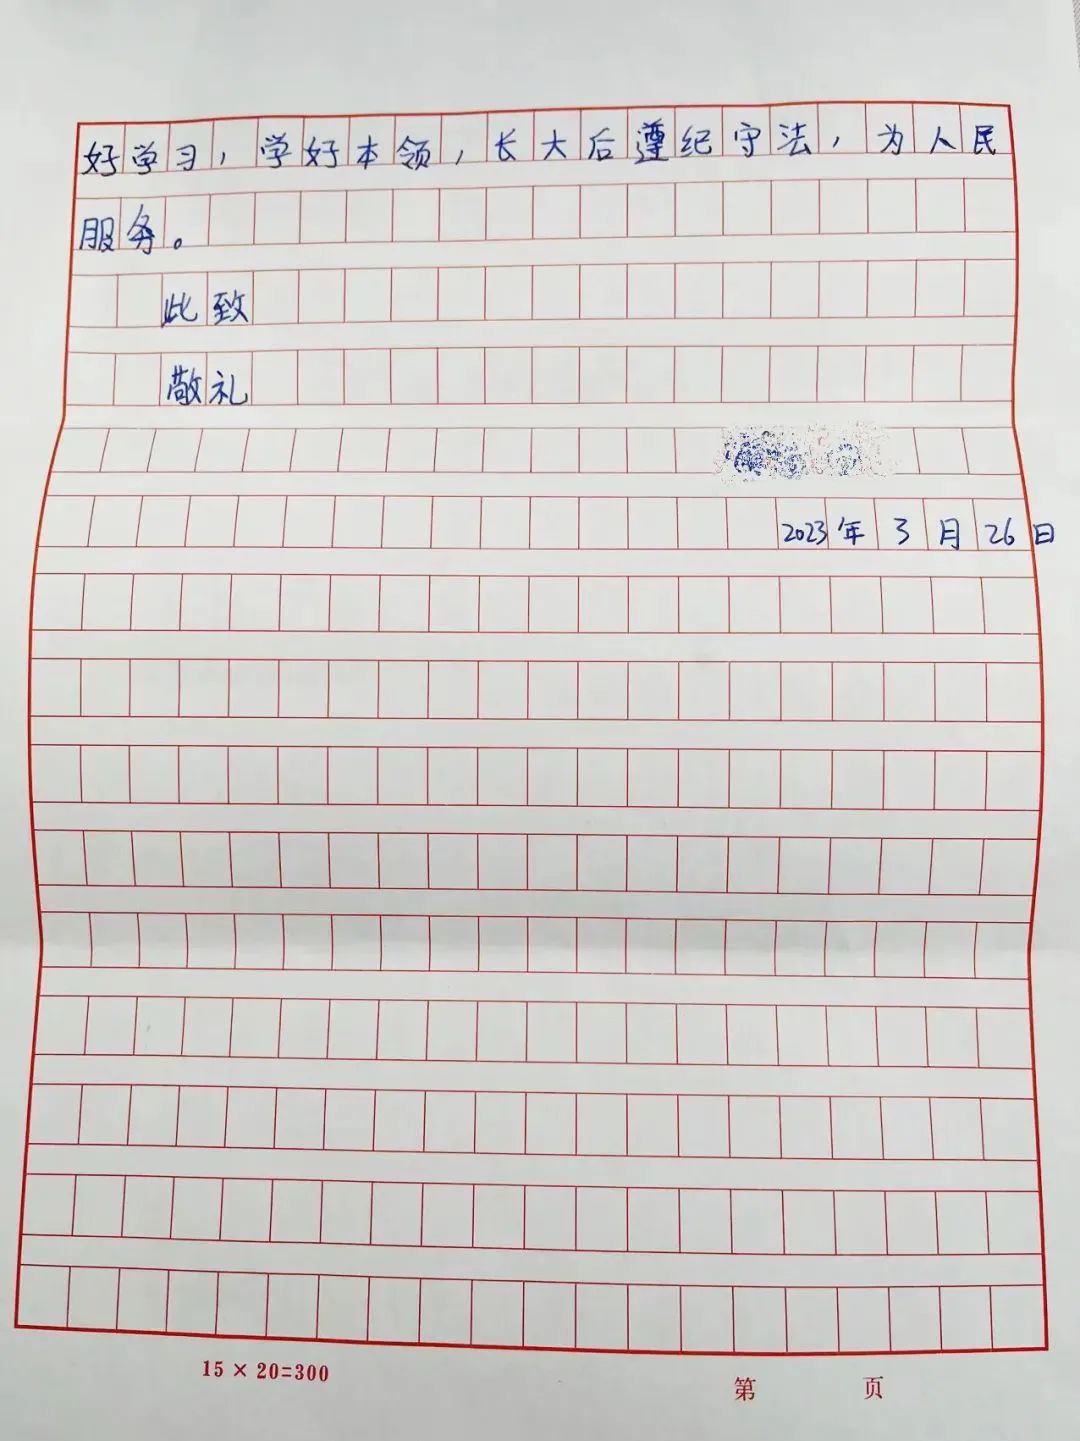 好学习，学好本领，长大后遵纪守法，为人民
服务。
此致
敬礼
2023年3月26日
15×20=300
第 页